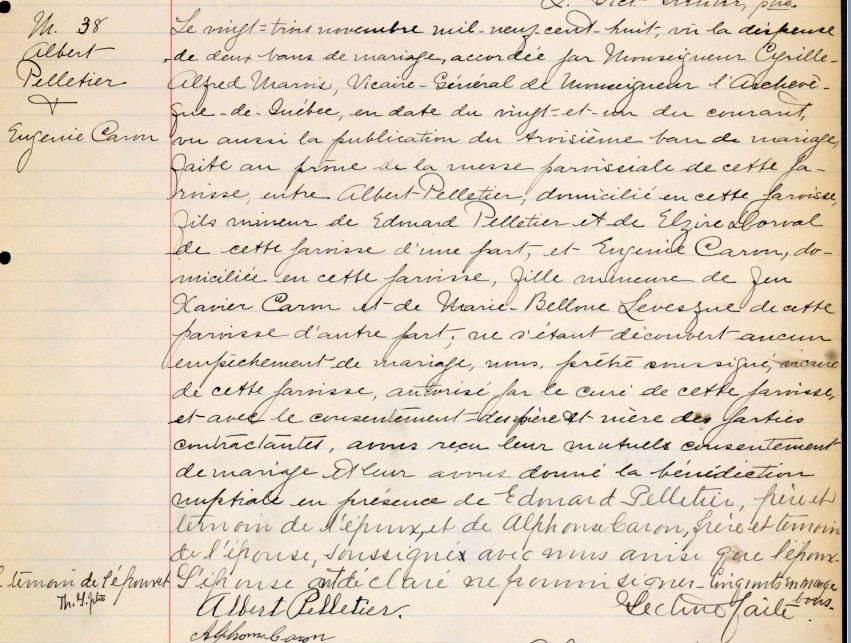 M. 38
Albert
Pelletier
+
Eugenie Caron
Le vingt-trois novembre mil-neuf-cent-huit, vu la dispense
de deux bans de mariage, accordée par Monseigneur Cyrille-
Alfred Marois, Vicaire-Général de Monseigneur l'Archevê-
que-de-Québec, en date du vingt-et-un du courant,
vu aussi la publication du troisième ban de mariage,
faite au prône de la messe paroissiale de cette pa-
roisse, entre Albert Pelletier, domicilié en cette paroisse,
fils mineur de Edouard Pelletier et de Elzire Dorval
de cette paroisse d'une part, et Eugenie Caron, do-
miciliée en cette paroisse, fille mineure de feu
Xavier Caron et de Marie-Bellone Levesque de cette
paroisse d'autre part; ne s'étant découvert aucun
empêchement de mariage, nous, prêtre soussigné, vicaire
de cette paroisse, autorisé par le curé de cette paroisse,
et avec le consentement des père et mère des parties
contractantes, avons reçu leur mutuel consentement
de mariage et leur avons donné la bénédiction
nuptiale en présence de Edouard Pelletier, père et
temoin de l'époux, et de Alphonse Caron, frère et temoin
de l'épouse, soussignés avec nous ainsi que l'époux.
et temoin de l'époux et
L'épouse ont déclaré ne pouvoir signer. en marge
bons.
Lecture faite.
Albert Pelletier.
Alphonse Caron